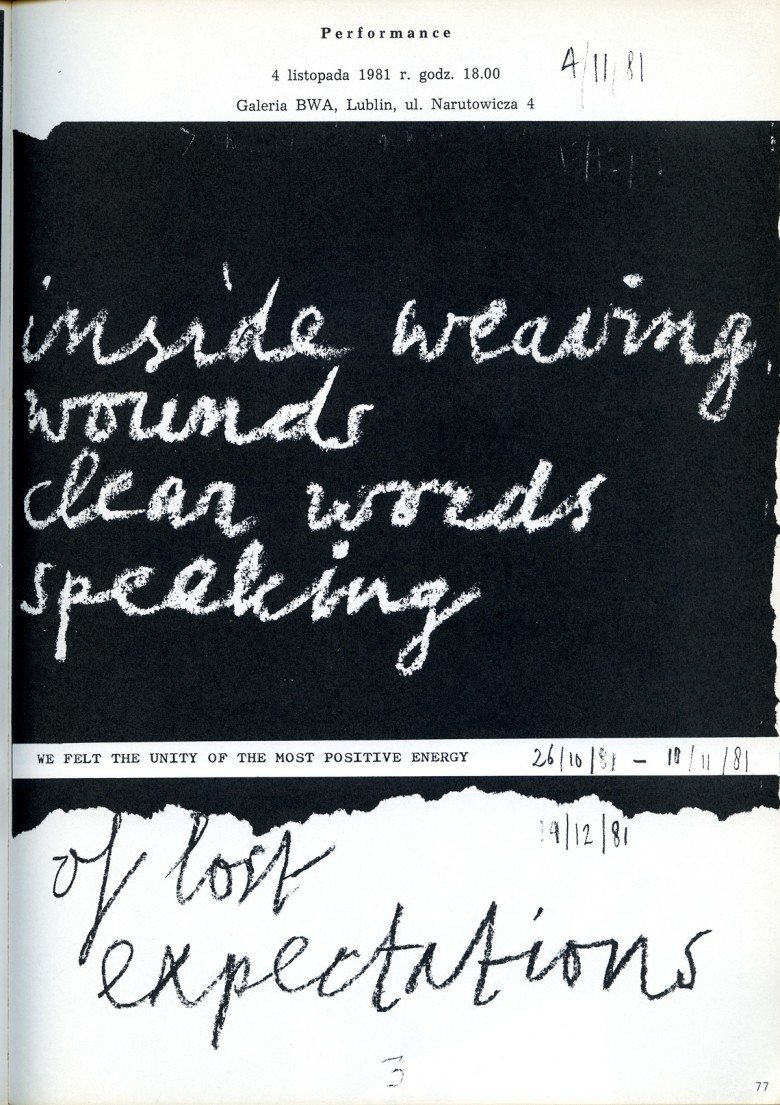 Performance
4 listopada 1981 r. godz. 18.00
4/11/81
Galeria BWA, Lublin, ul. Narutowicza 4
inside weaving
wounds
clear words
speaking
WE FELT THE UNITY OF THE MOST POSITIVE ENERGY
26/10/81 – 10/11/81
19/12/81
of lost
expectations
3
77